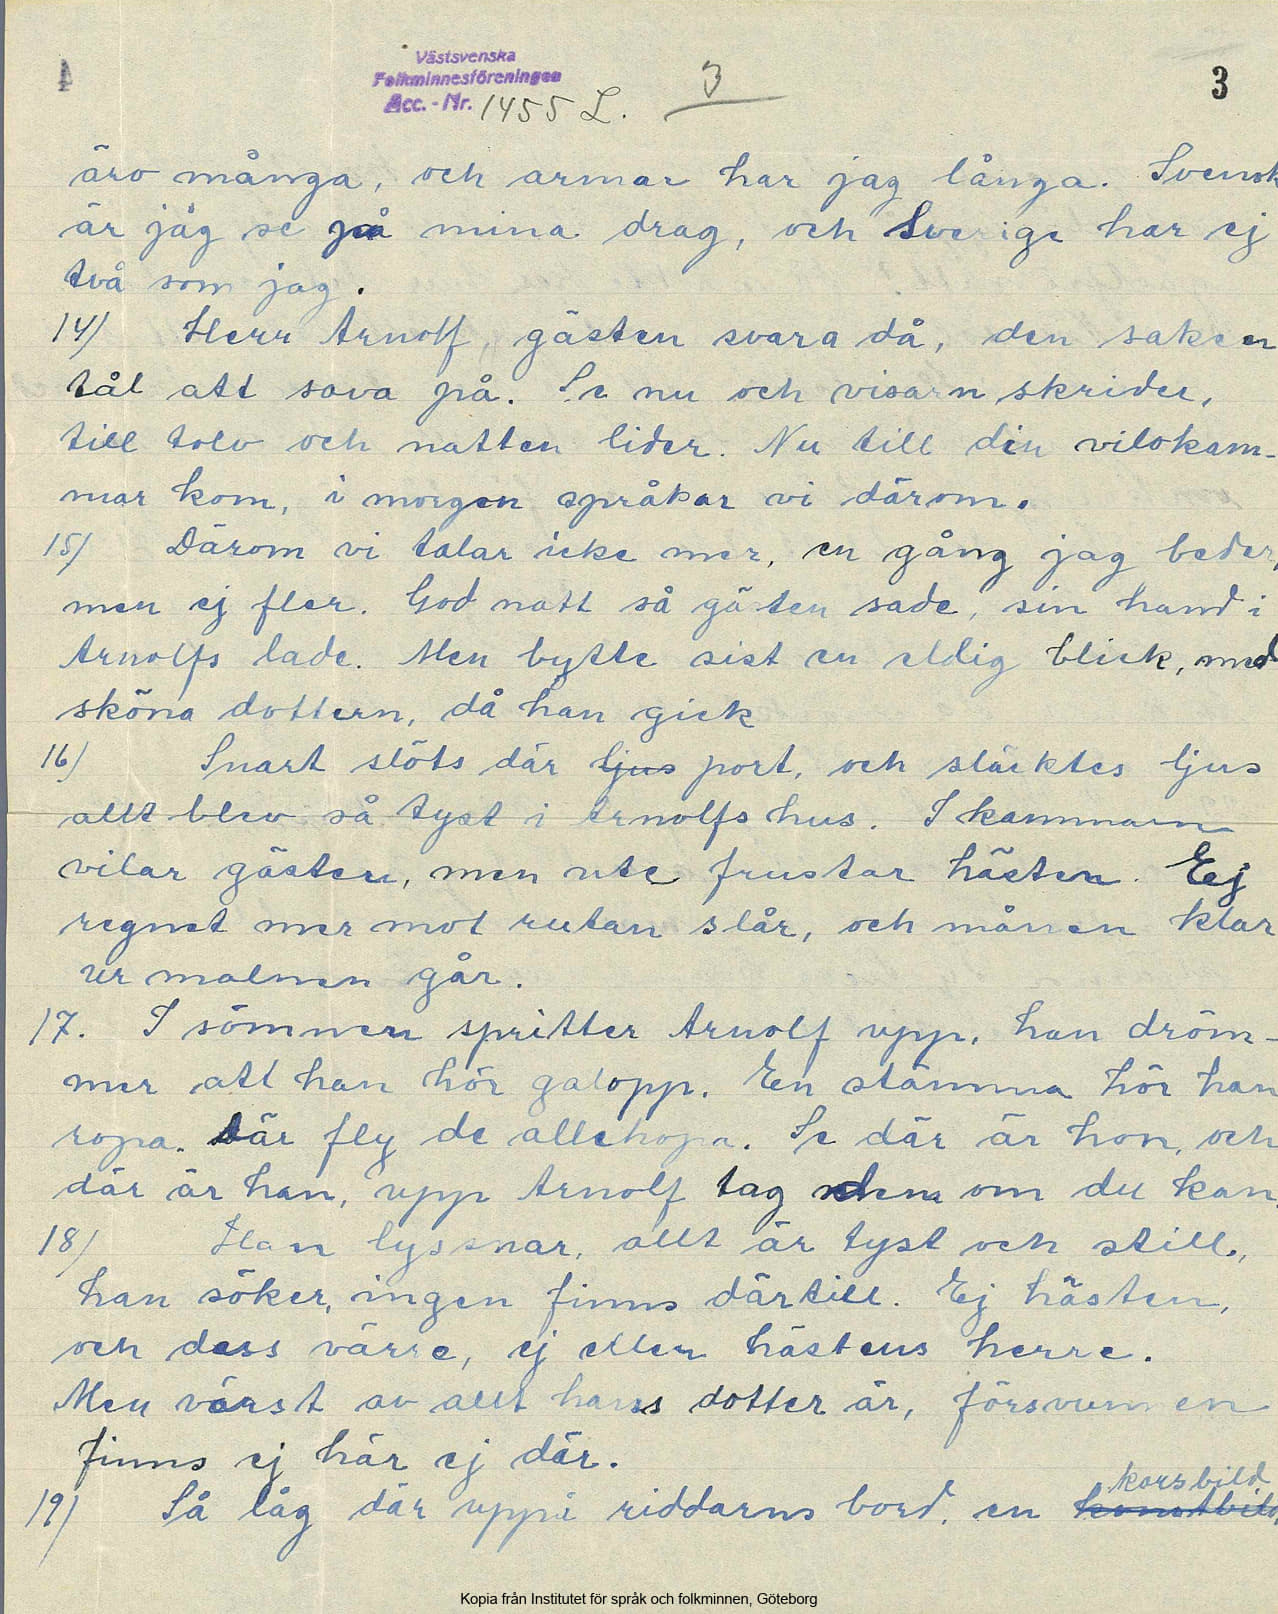 Västsvenska
Folkminnesföreningen
Acc. - Nr. 1455 L. 3 3
äro många, och armar har jag långa. Svensk
är jag se på mina drag, och Sverige har ej
två som jag.
14) Herr Arnolf, gästen svara då, den saken
tål att sova på. Se nu och visarn skrider,
till tolv och natten lider. Nu till din vilokam-
mar kom, i morgen språkar vi därom.
15) Därom vi talar icke mer, en gång jag beder,
men ej fler. God natt så gästen sade, sin hand i
Arnolfs lade. Men bytte sist en eldig blick, med
sköna dottern, då han gick
16) Snart slöts där ljus port, och släcktes ljus
allt blev så tyst i Arnolfs hus. I kammarn
vilar gästen, men ute frustar hästen. Ej
regnet mer mot rutan slår, och månen klar
ur molnen går.
17. I sömnen spritter Arnolf upp, han dröm-
mer att han hör galopp. En stämma hör han
ropa. Där fly de allehopa. Se där är hon, och
där är han, upp Arnolf tag dem om du kan.
18) Han lyssnar, allt är tyst och still,
han söker, ingen finns därtill. Ej hästen,
och dess värre, ej eller hästens herre.
Men värst av allt hans dotter är, försvunnen
finns ej här ej där.
korsbild
19) Så låg där uppå riddarns bord, en konstbild,
Kopia från Institutet för språk och folkminnen, Göteborg